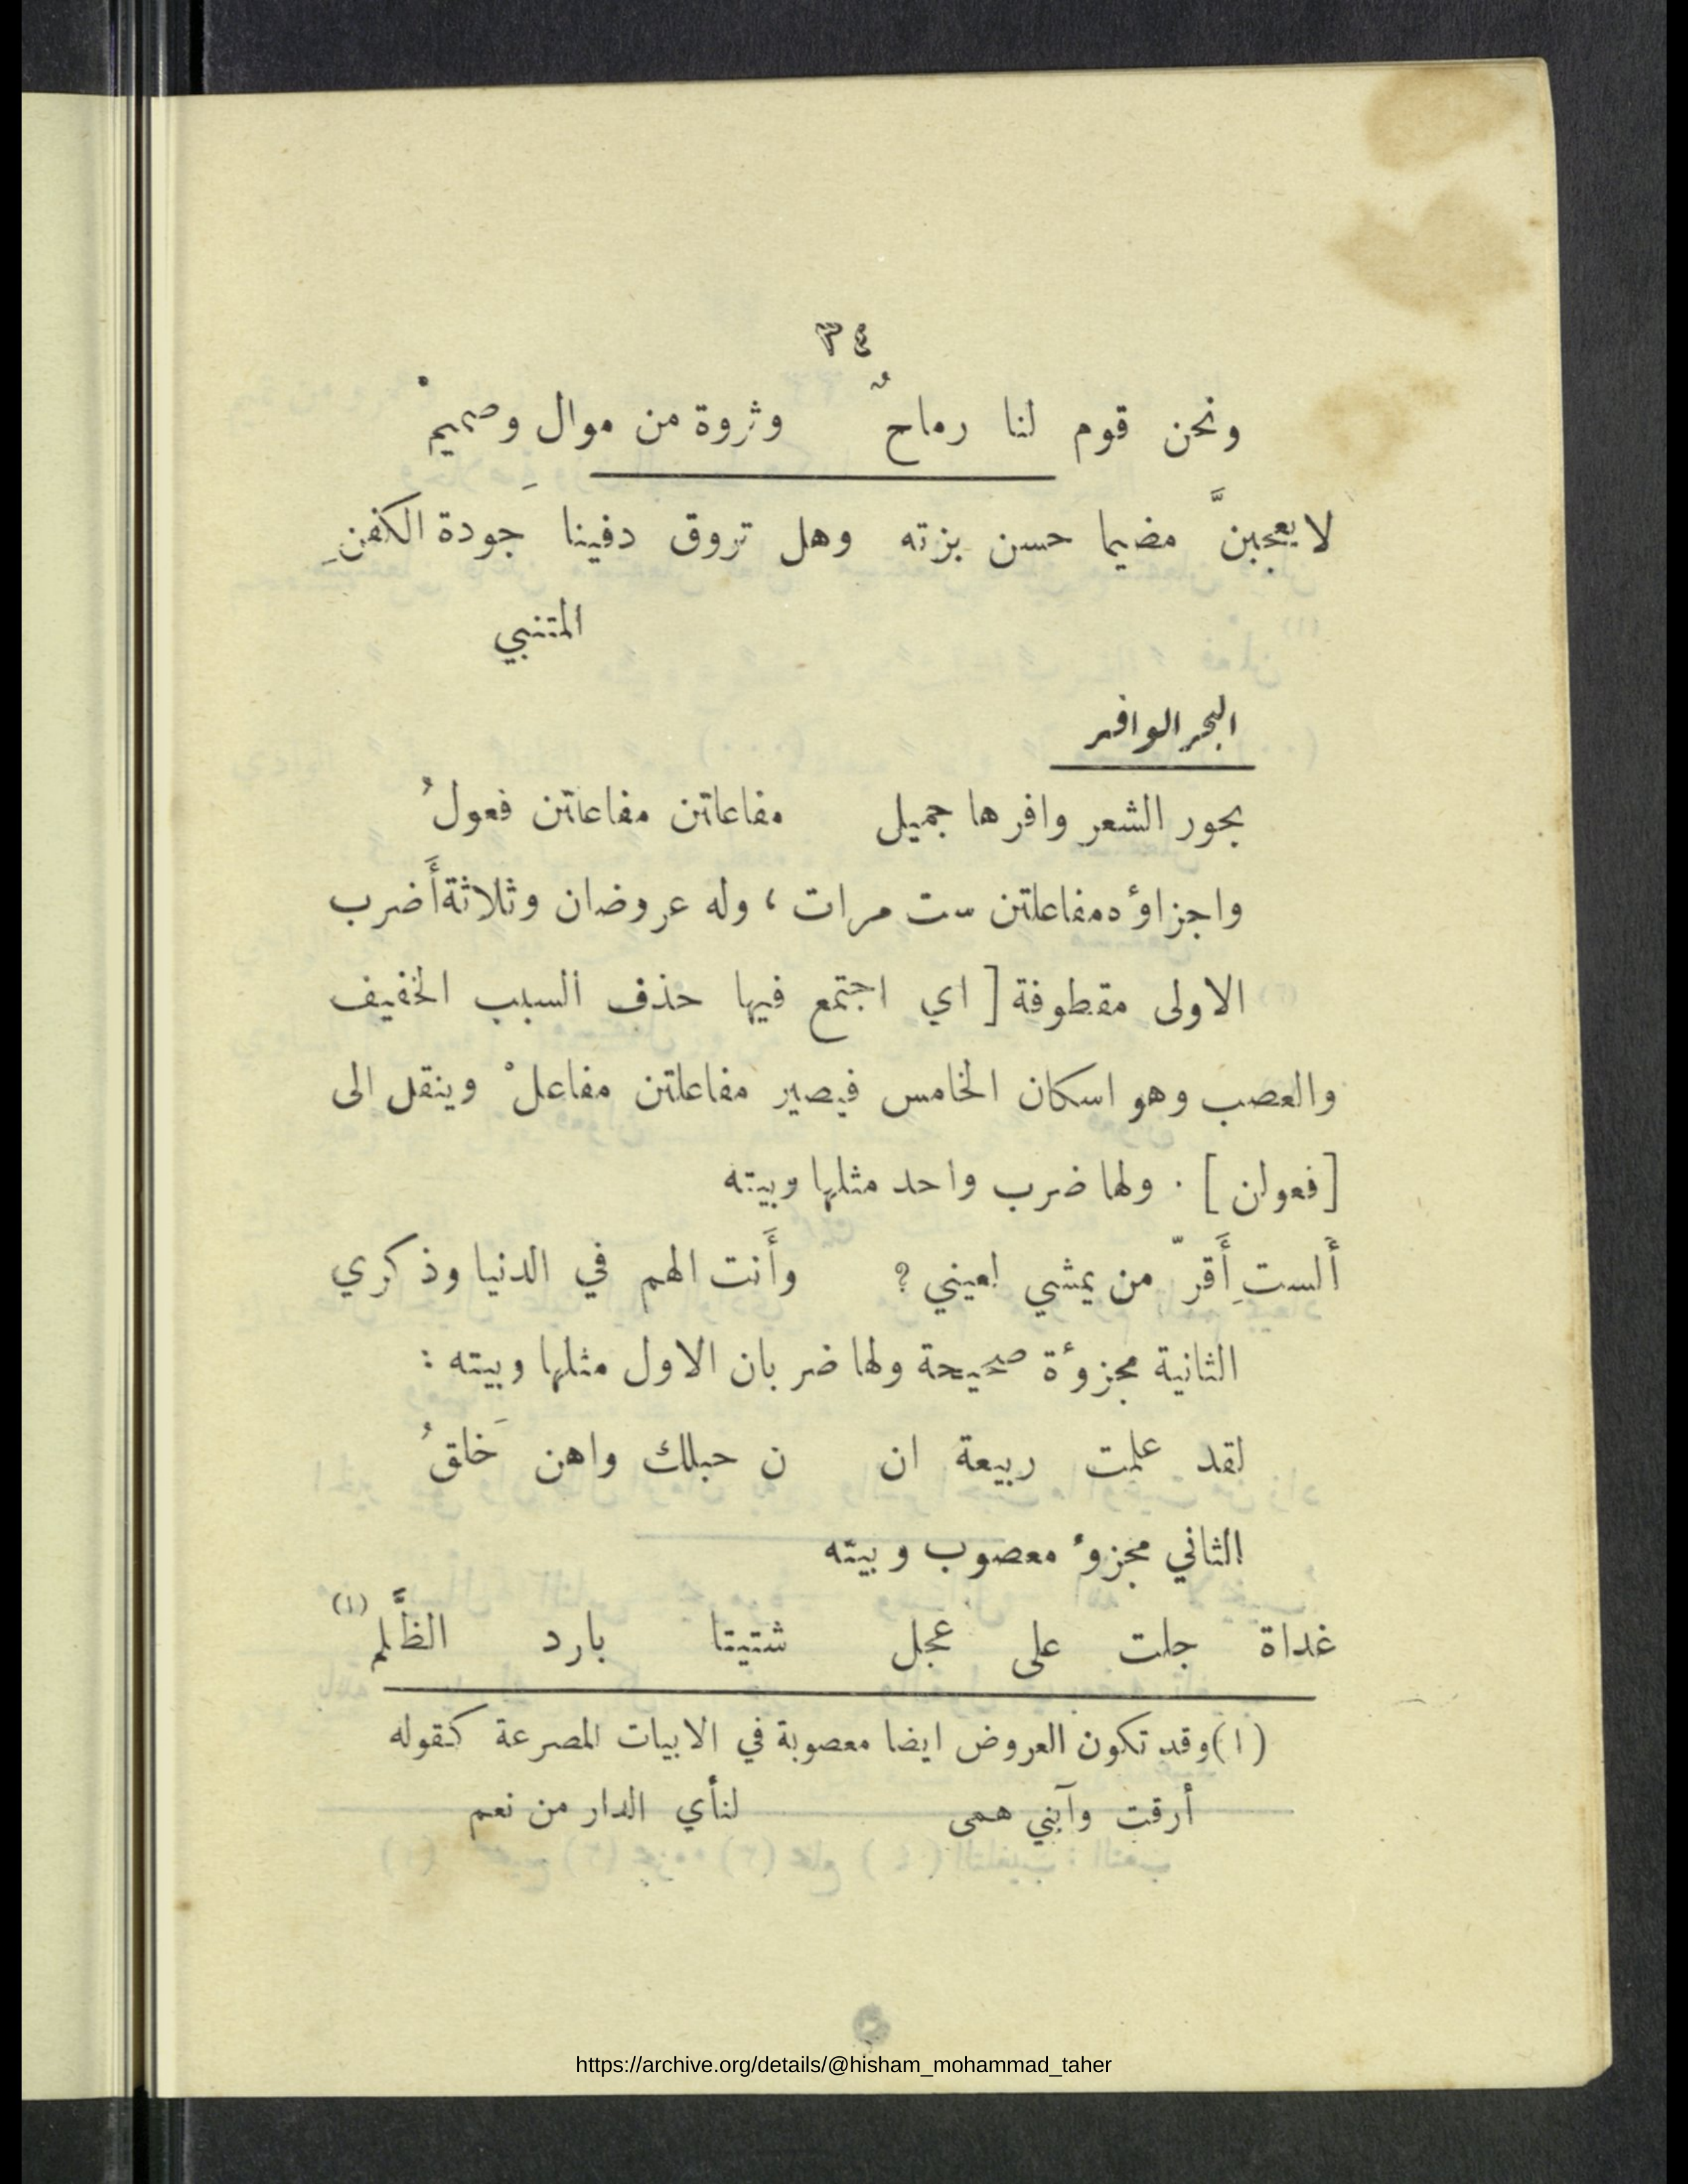 ٣٤
ونحن قوم لنا رماحٌ وثروة من موال وصميمْ
لا يعجبنَّ مضيما حسن بزته وهل تروق دفينا جَودة الكفنِ
المتنبي
البحر الوافر
بحور الشعر وافرها جميل مفاعلتن مفاعلتن فعولُ
واجزاؤه مفاعلتن ست مرات ، وله عروضان وثلاثة أَضرب
الاولى مقطوفة [ اي اجتمع فيها حذف السبب الخفيف
والعصب وهو اسكان الخامس فيصير مفاعلتن مفاعلْ وينقل الى
[ فعولن ] . ولها ضرب واحد مثلها وبيته
أَلستِ أَقرّ من يمشي لعيني ؟ وأَنت الهم في الدنيا وذكري
الثانية مجزوءة صحيحة ولها ضربان الاول مثلها وبيته :
لقد علمت ربيعة ان ن حبلك واهن خَلقُ
الثاني مجزوء معصوب وبيته
غداة جلت على عجل شتيتا بارد الظَّلم (١)
(١) وقد تكون العروض ايضا معصوبة في الابيات المصرعة كقوله
أرقت وآبني همى لنأي الدار من نعم
https://archive.org/details/@hisham_mohammad_taher